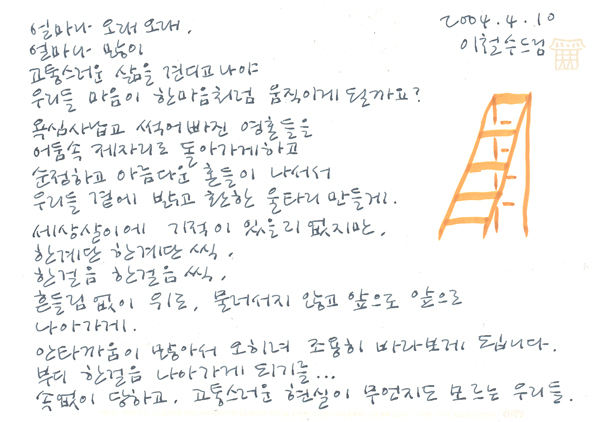 2004.4.10
이철수드림
얼마나 오래오래,
얼마나 많이
고통스러운 삶을 견디고 나야
우리들 마음이 한마음처럼 움직이게 될까요?
욕심사납고 썩어빠진 영혼들을
어둠속 제자리로 돌아가게하고
순정하고 아름다운 혼들이 나서서
우리들 곁에 밝고 환한 울타리 만들게.
세상살이에 기적이 있을리 없지만,
한계단 한계단 씩,
한걸음 한걸음 씩,
흔들림 없이 위로, 물러서지 않고 앞으로 앞으로
나아가게.
안타까움이 많아서 오히려 조용히 바라보게 됩니다.
부디 한걸음 나아가게 되기를...
속없이 당하고, 고통스러운 현실이 무언지도 모르는 우리들.